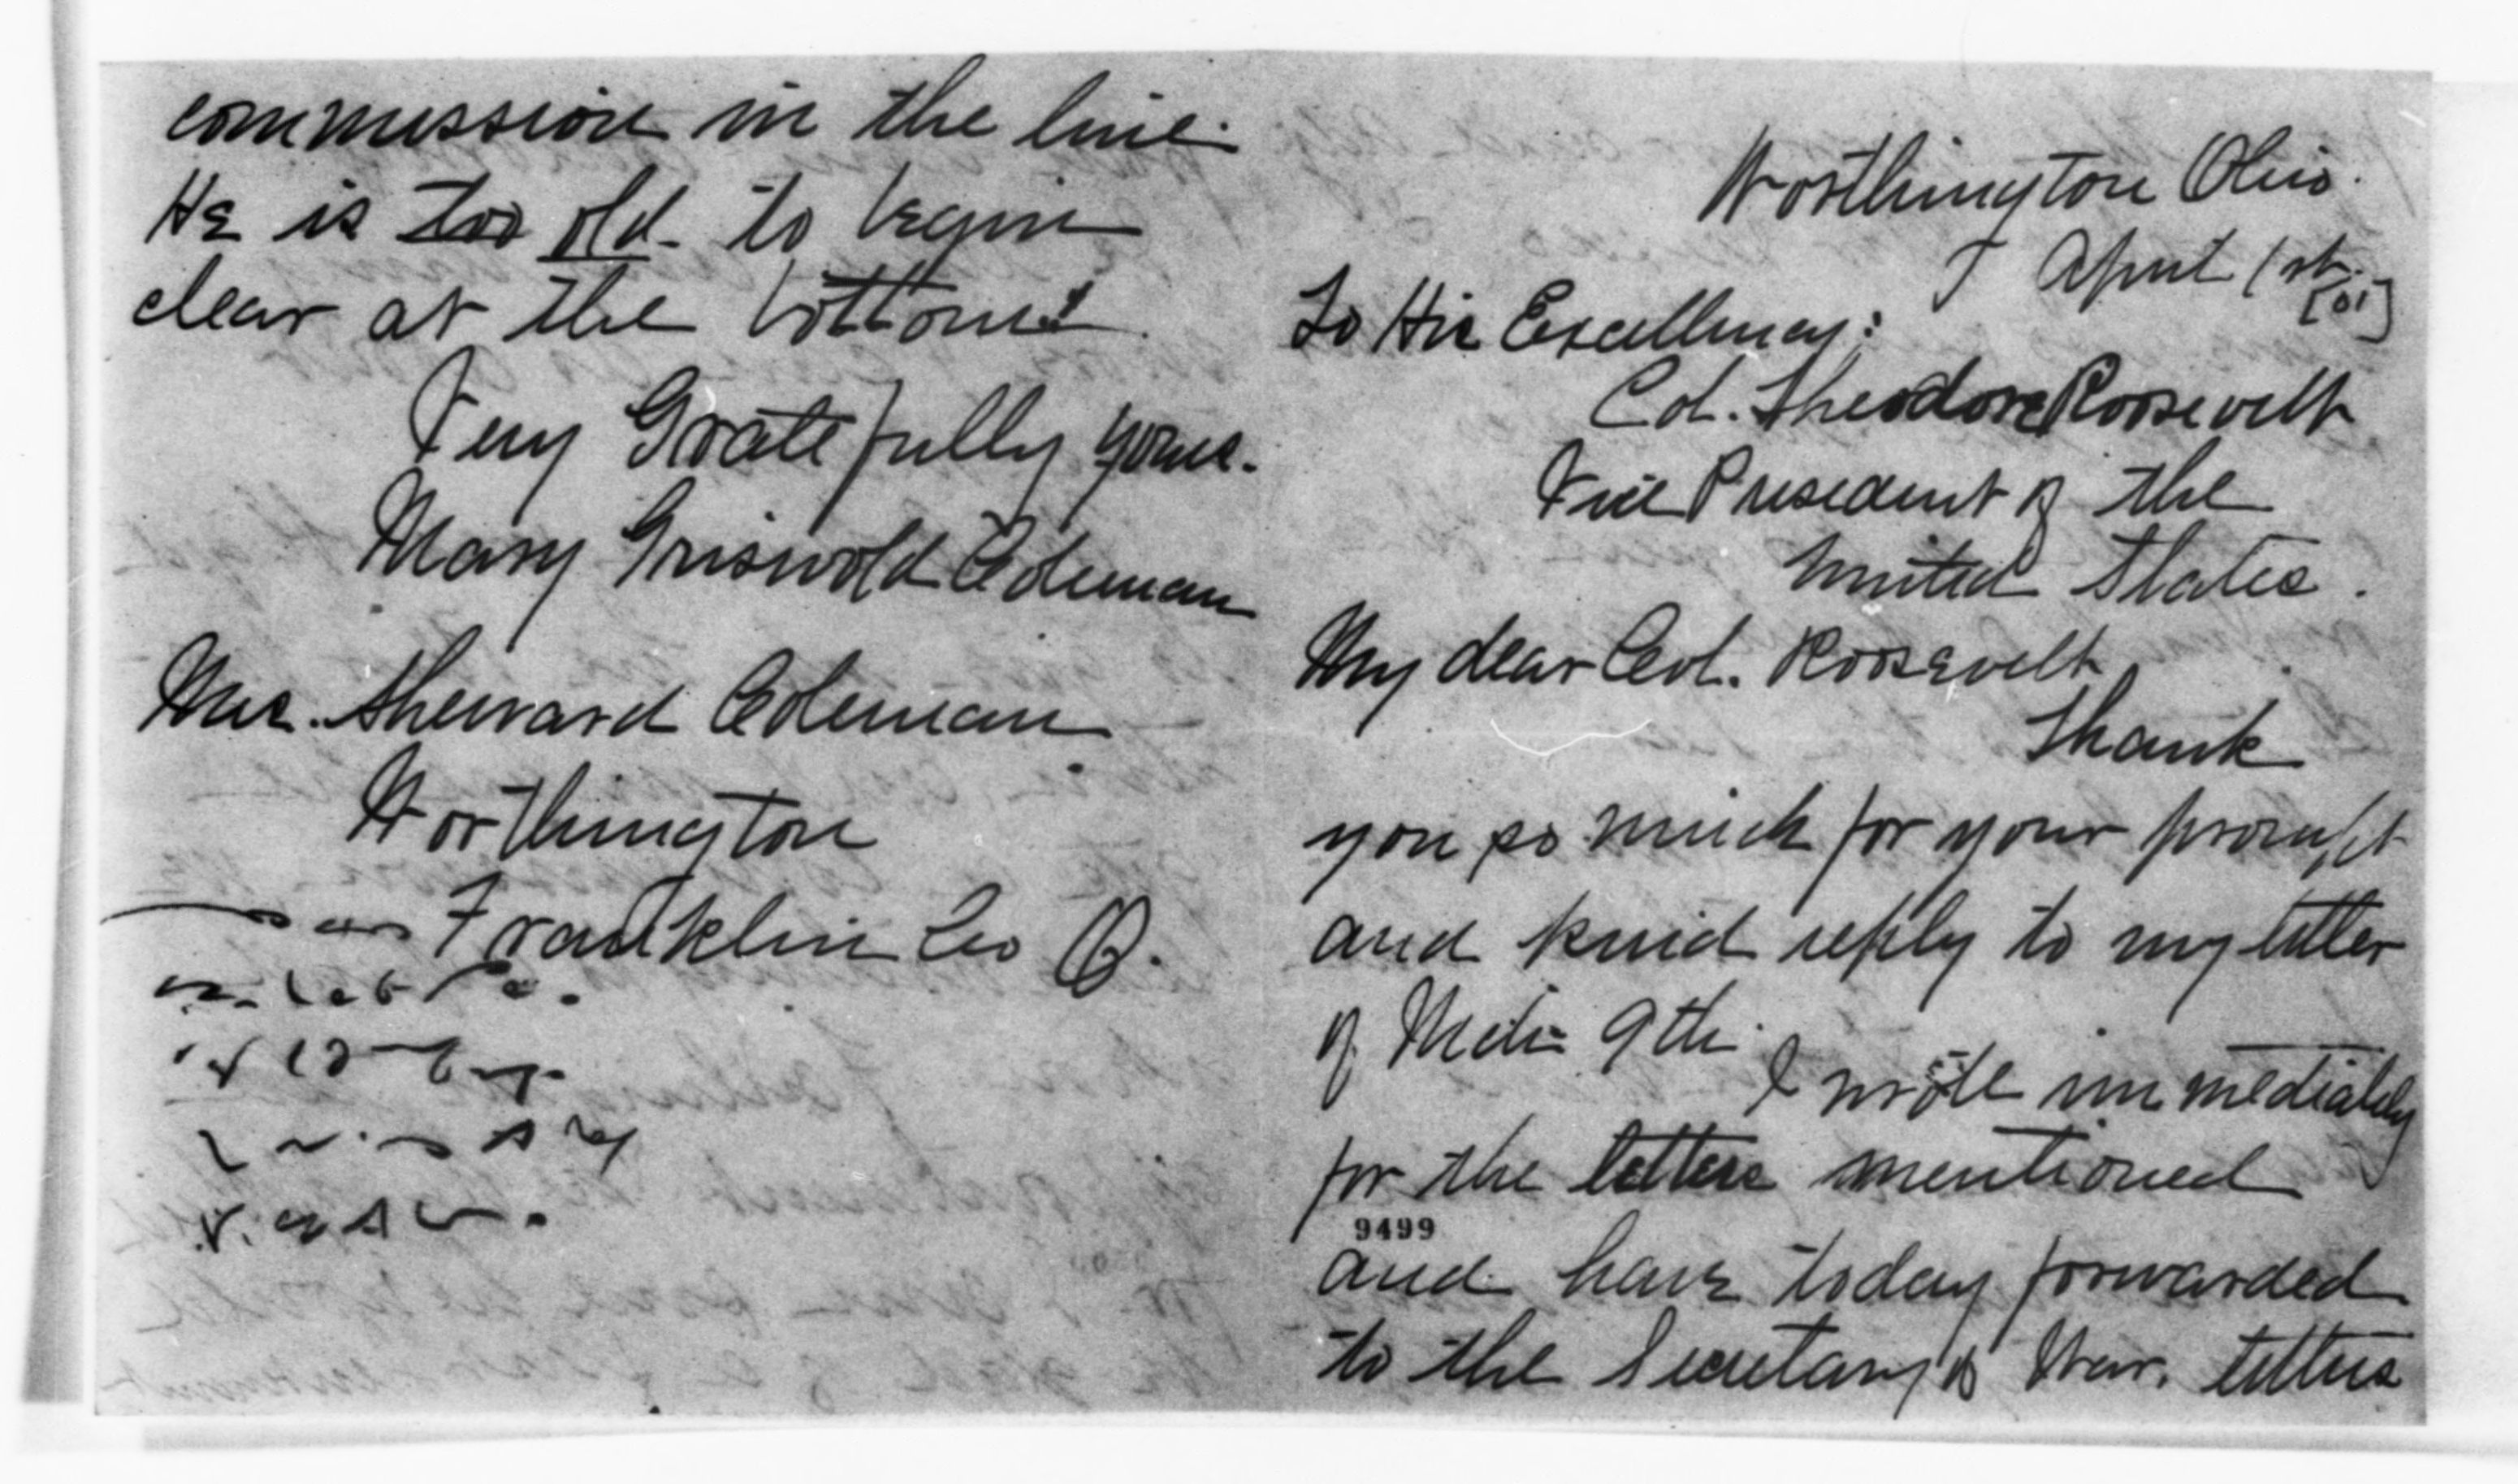 commission in the line.
He is too old to begin
clear at the bottom!
Very Gratefully yours.
Mary Griswold Coleman
Mrs. Sheward Coleman
Worthington
Franklin Co O.
Worthington Ohio.
April 1st.
[01]
To His Excellency:
Col. Theodore Roosevelt
Vice President of the
United States.
My dear Col. Roosevelt
Thank
you so much for your prompt
and kind reply to my letter
of Mch 9th.
I wrote immediately
for the letters mentioned
9499
and have today forwarded
to the Secretary of War. letters